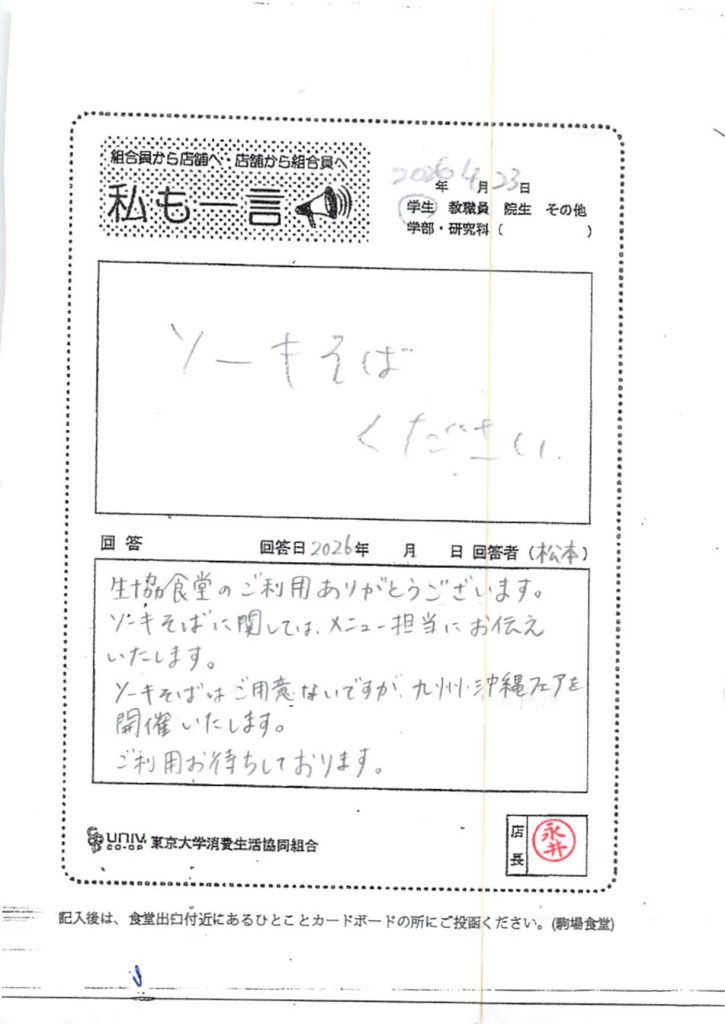 組合員から店舗へ・店舗から組合員へ
私も一言
2026年4月23日
学生 教職員 院生 その他
学部・研究科（ ）
ソーキそば
ください。
回答 回答日2026年 月 日 回答者（松本）
生協食堂のご利用ありがとうございます。
ソーキそばに関しては、メニュー担当にお伝え
いたします。
ソーキそばはご用意ないですが、九州・沖縄フェアを
開催いたします。
ご利用お待ちしております。
UNIV.
CO-OP
東京大学消費生活協同組合
店長
永井
記入後は、食堂出口付近にあるひとことカードボードの所にご投函ください。(駒場食堂)